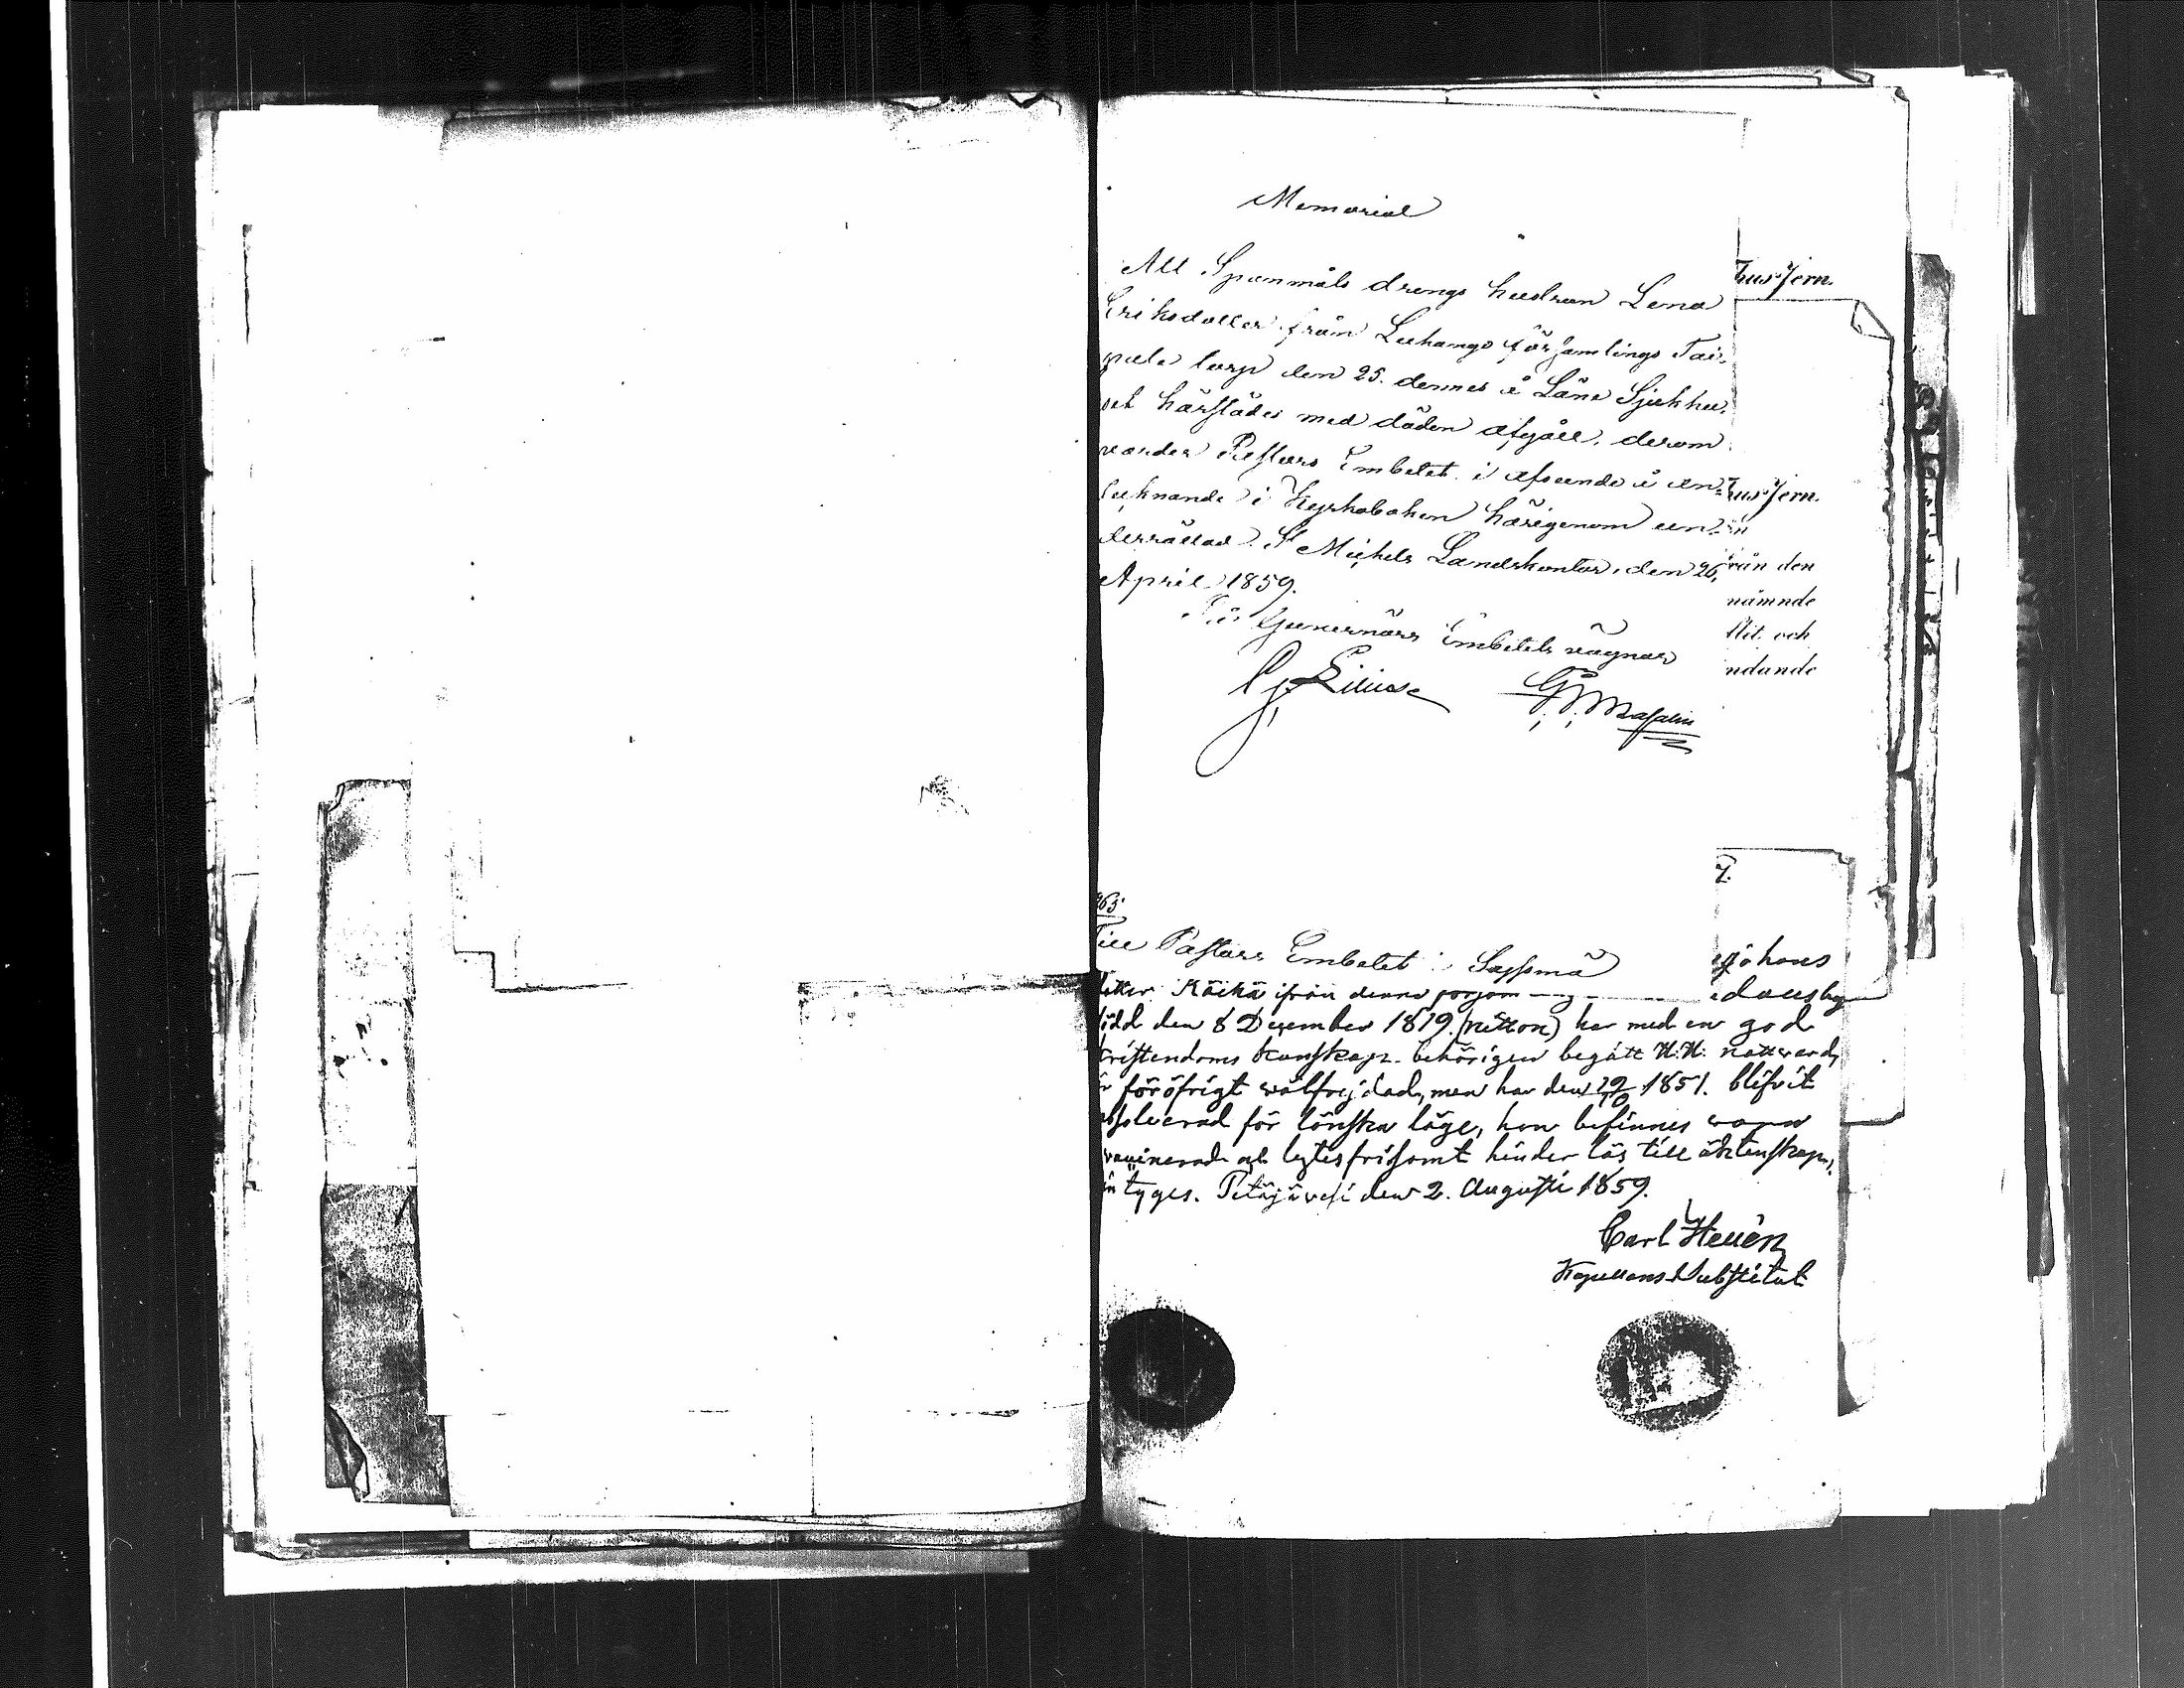 Memorial
Att Spanmåls drengs hustrun Lena
Eriksdotter från Luhango församlings Tai-
pale torp den 25. dennes å Läns Sjukhu-
set härstädes med döden afgått, derom
varder Pastors Embetet i afseende å an-
tecknande i Kyrkoboken härigenom un-
derrättad. St Michels Landskontor, den 26.
April 1859.
Guvernörs Embetets vägnar
hus Jern.
hus Jern.
från den
nämnde
flit och
ndande
365
Till Pastors Embetet i Sysmä
dotter Räihä ifrån denna
född den 8 December 1819 (nitton) har med en god
kristendoms kunskap behörigen begått H.H. nattvard,
är föröfrigt välfrejdad, men har den 19/10 1851. blifvit
absolverad för lönska läge, hon befinnes vara
vaccinerad och lytesfri samt hinder lös till äktenskap,
intyges. Petäjävesi den 2. Augusti 1859.
Carl Hellén
Kapellans Substitut